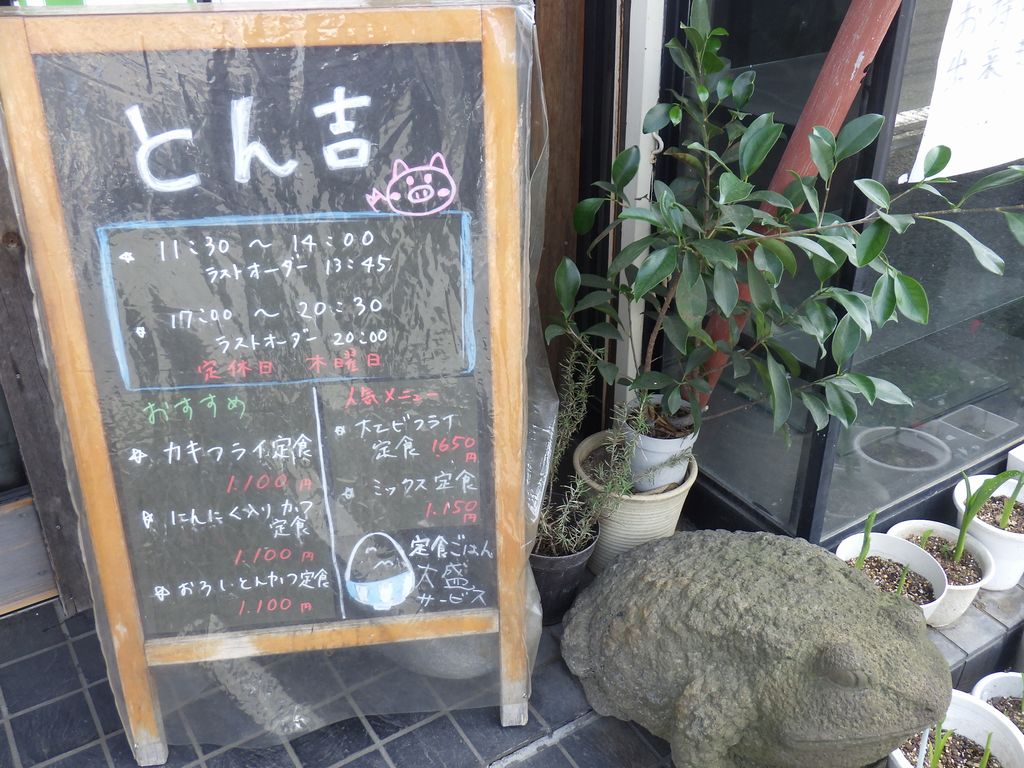 とん吉
11:30 ～ 14:00
ラストオーダー 13:45
17:00 ～ 20:30
ラストオーダー 20:00
定休日 木曜日
おすすめ
カキフライ定食
1.100円
にんにく入りカツ
定食
1.100円
おろしとんかつ定食
1.100円
人気メニュー
大エビフライ
定食 1650円
ミックス定食
1.150円
定食ごはん
大盛
サービス
お待
出来ま